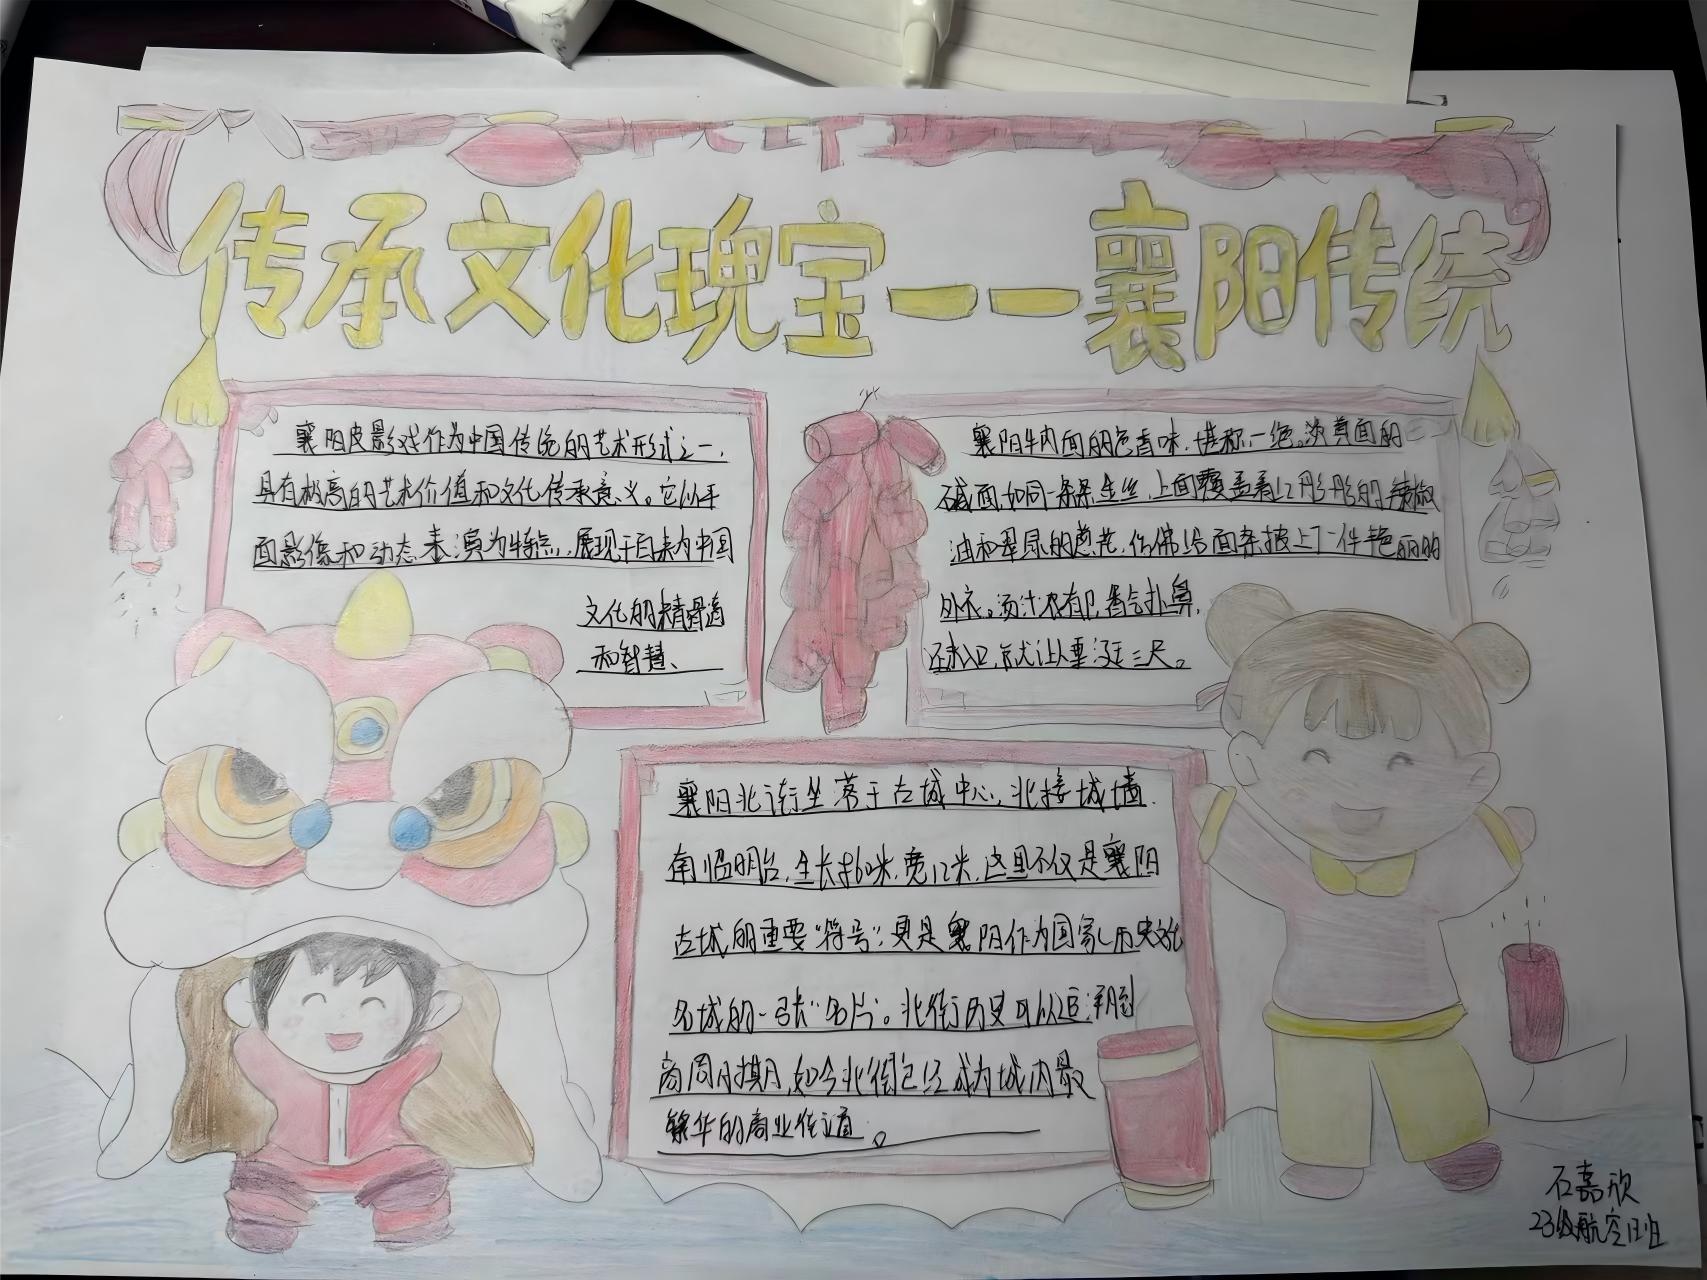 传承文化瑰宝——襄阳传统
襄阳皮影戏作为中国传统的艺术形式之一,
具有极高的艺术价值和文化传承意义。它以平
面影像和动态表演为特点,展现了自来内中国
文化的精骨道
和智慧、
襄阳牛肉面的色香味,堪称一绝。淡黄面的
碱面,如同一条条金丝,上面覆盖着红彤彤的辣椒
油和翠绿的葱花,仿佛给面条披上了一件艳丽的
外衣。汤汁浓郁,香气扑鼻,
还未入口,就已让人垂涎三尺。
襄阳北街坐落于古城中心,北接城墙,
南临明台,全长860米,宽12米,这里不仅是襄阳
古城的重要“符号”,更是襄阳作为国家历史文化
名城的一张“名片”。北街历史可以追溯到
商周时期,如今北街已经成为城内最
繁华的商业街道。
石嘉欣
23级航空1班